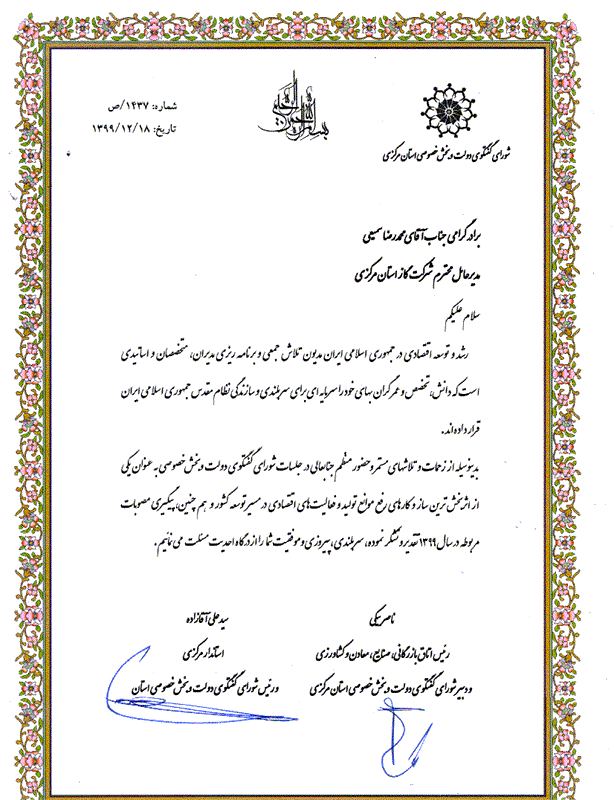 شماره: ۱۴۳۷/ص
تاریخ: ۱۳۹۹/۱۲/۱۸
بسم الله الرحمن الرحیم
شورای گفتگوی دولت و بخش خصوصی استان مرکزی
برادر گرامی جناب آقای محمدرضا سمیعی
مدیرعامل محترم شرکت گاز استان مرکزی
سلام علیکم
رشد و توسعه اقتصادی در جمهوری اسلامی ایران مدیون تلاش جمعی و برنامه ریزی مدیران، متخصصان و اساتیدی
است که دانش، تخصص و عمر گران بهای خود را سرمایه ای برای سربلندی و سازندگی نظام مقدس جمهوری اسلامی ایران
قرار داده اند.
بدینوسیله از زحمات و تلاشهای مستمر و حضور منظم جنابعالی در جلسات شورای گفتگوی دولت و بخش خصوصی به عنوان یکی
از اثربخش ترین ساز و کارهای رفع موانع تولید و فعالیت های اقتصادی در مسیر توسعه کشور و هم چنین، پیگیری مصوبات
مربوطه در سال ۱۳۹۹ تقدیر و تشکر نموده، سربلندی، پیروزی و موفقیت شما را از درگاه احدیت مسئلت می نمایم.
ناصر بیکی
رئیس اتاق بازرگانی، صنایع، معادن و کشاورزی
و دبیر شورای گفتگوی دولت و بخش خصوصی استان مرکزی
سید علی آقازاده
استاندار مرکزی
و رئیس شورای گفتگوی دولت و بخش خصوصی استان